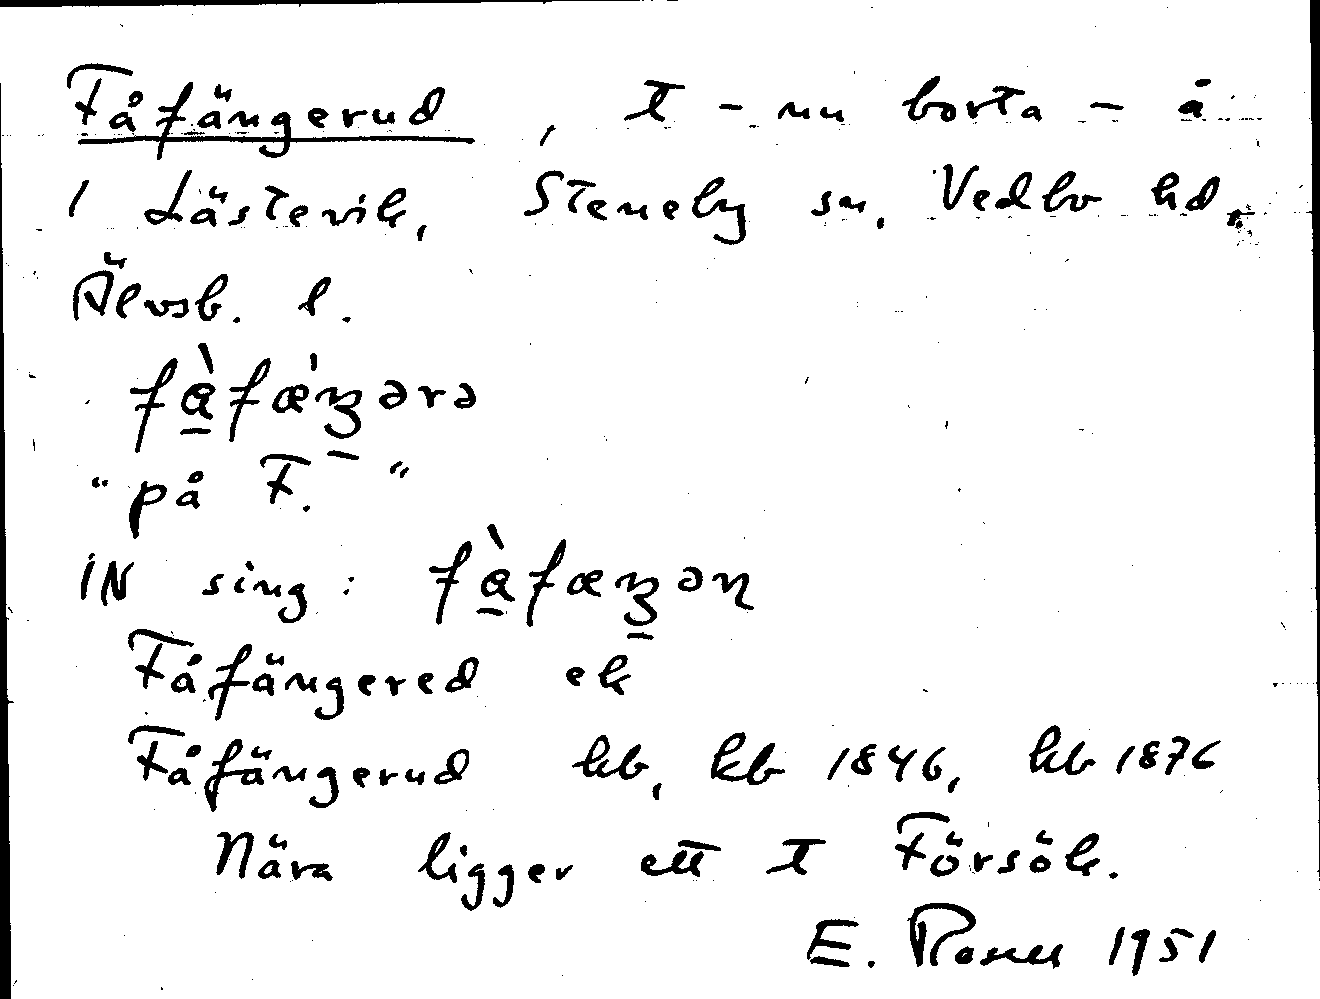 Fåfängerud, t - nu borta - å
1 Lästevik, Steneby sn, Vedbo hd,
Älvsb. l.
fàfæ'ꜫərə
"på F."
IN sing: fàfæꜫəɳ
Fåfängered ek
Fåfängerud hb, kb 1846, hb 1876
Nära ligger ett t Försök.
E. Rosell 1951